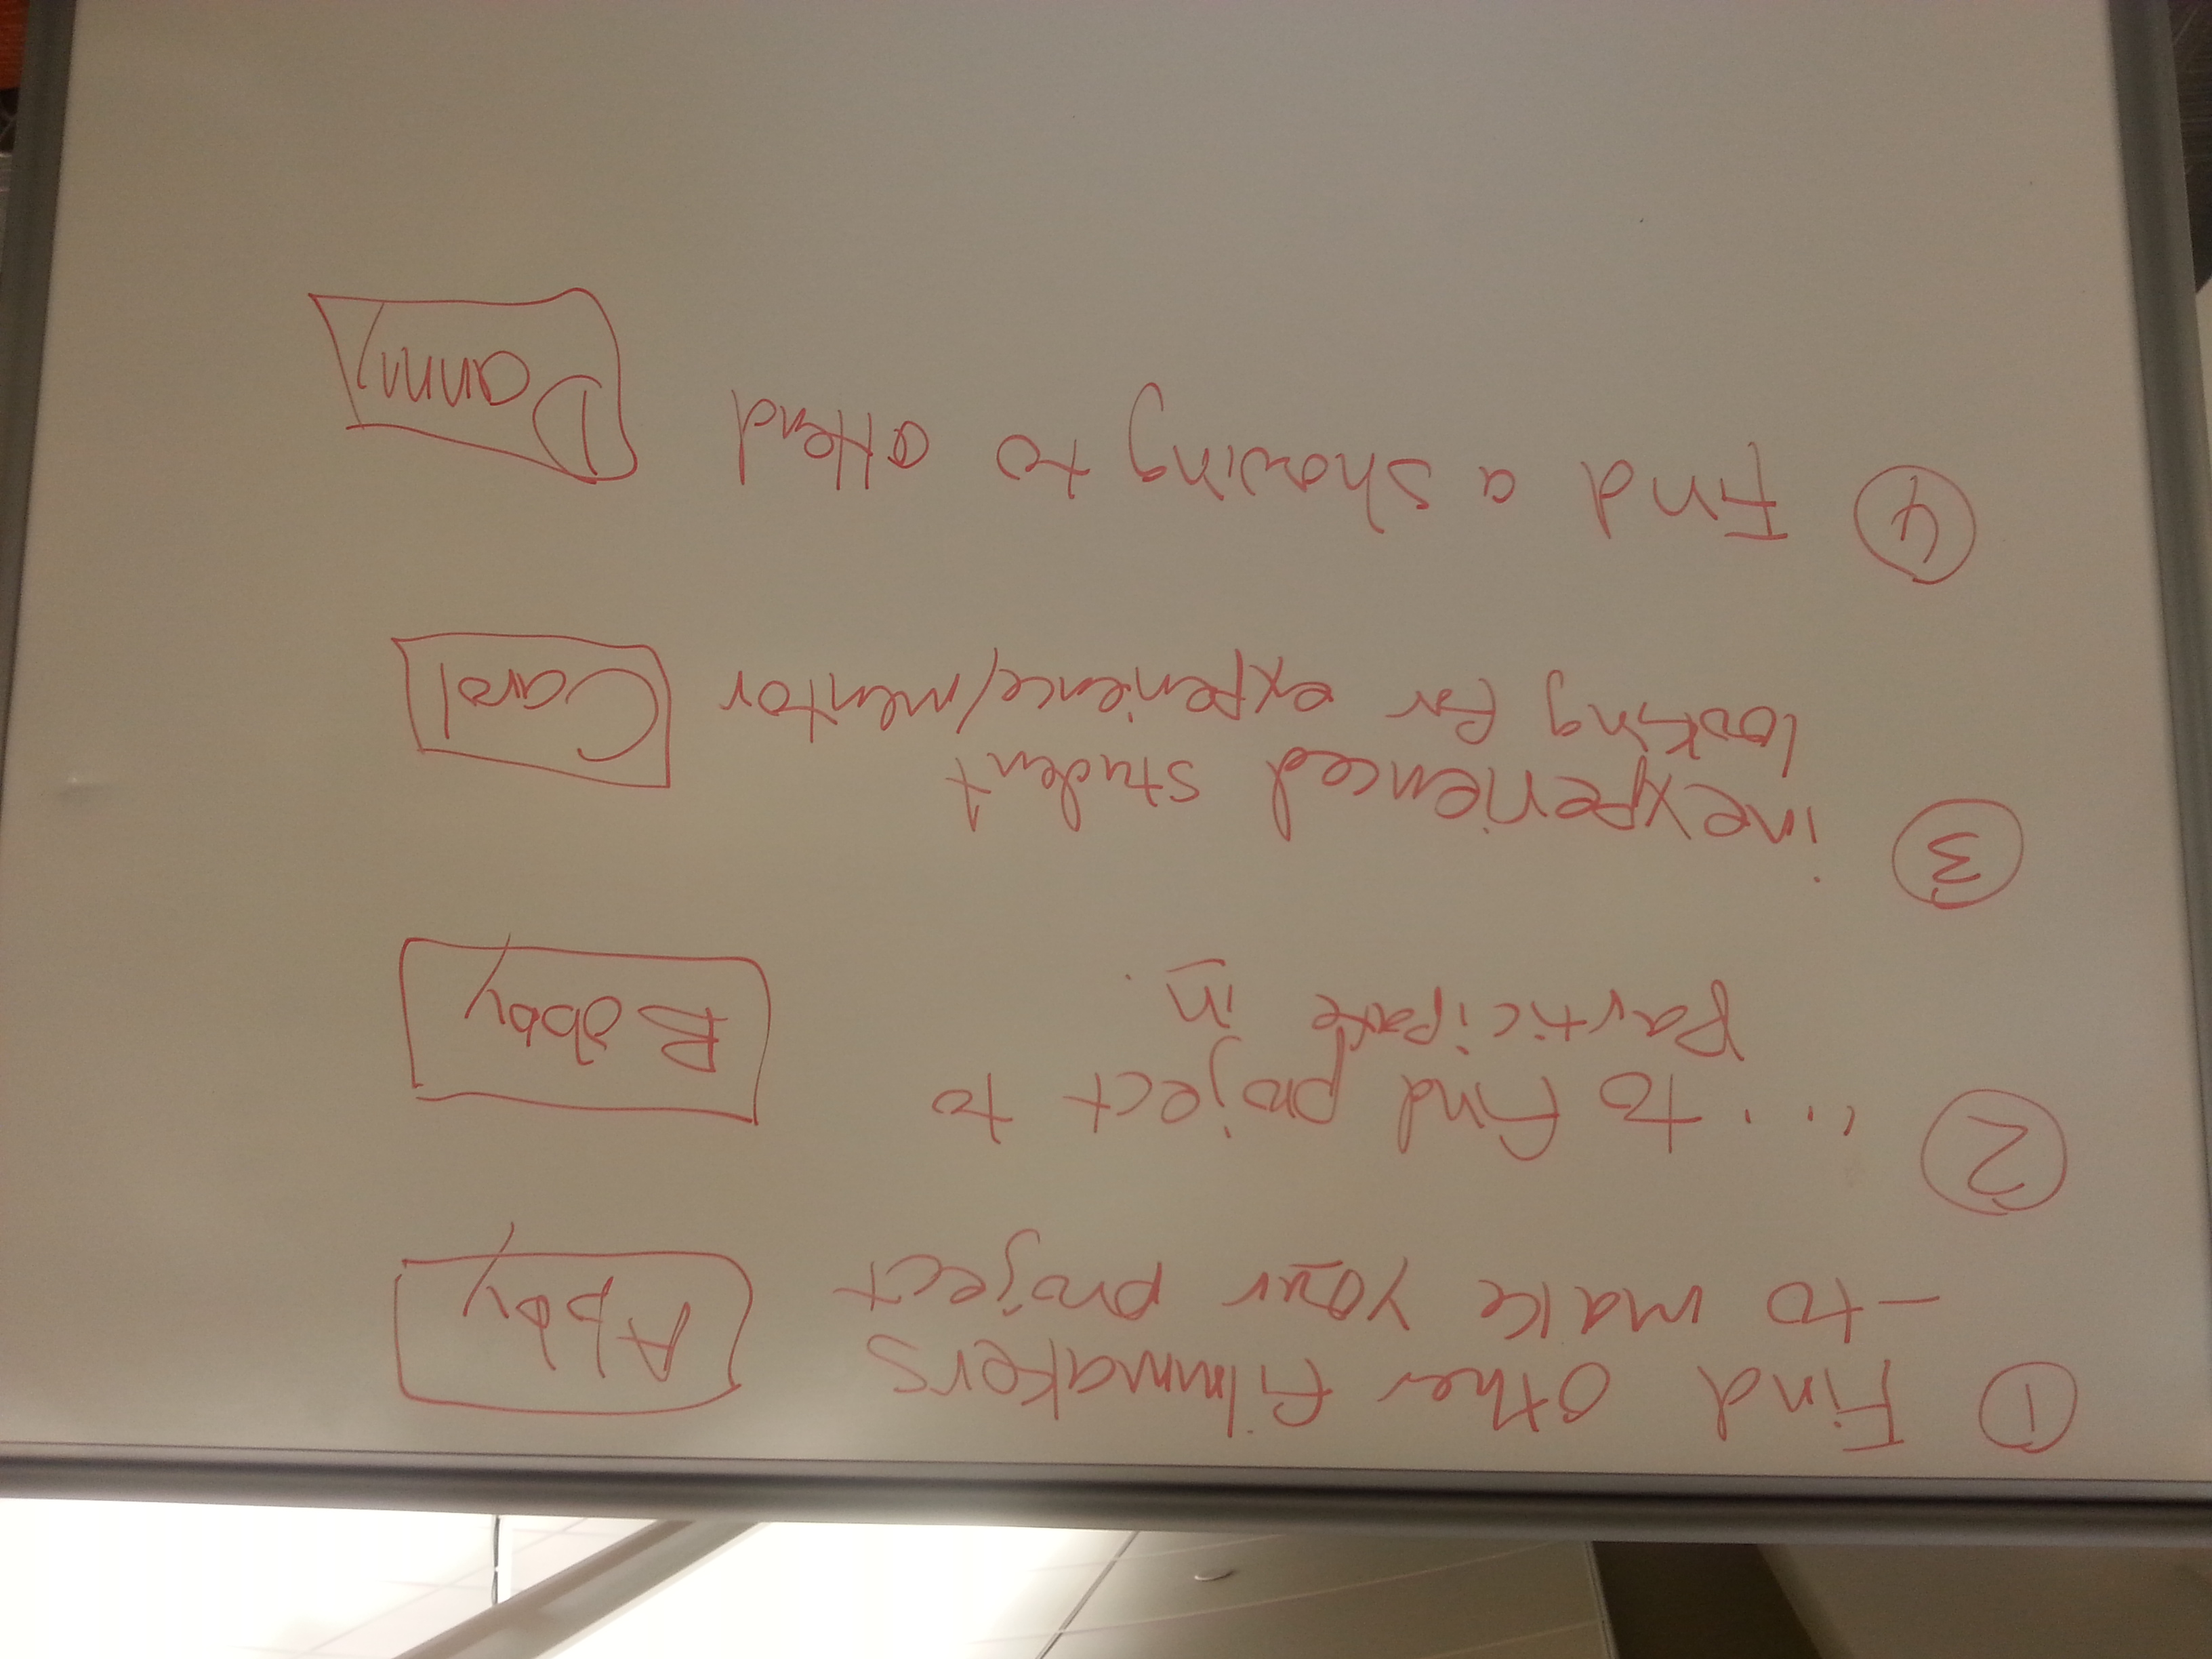 ① Find other filmmakers
-to make your project
Abby
② .... to find project to
participate in.
Bobby
③ inexperienced student
looking for experience/mentor
Carol
④ Find a showing to attend
Danny